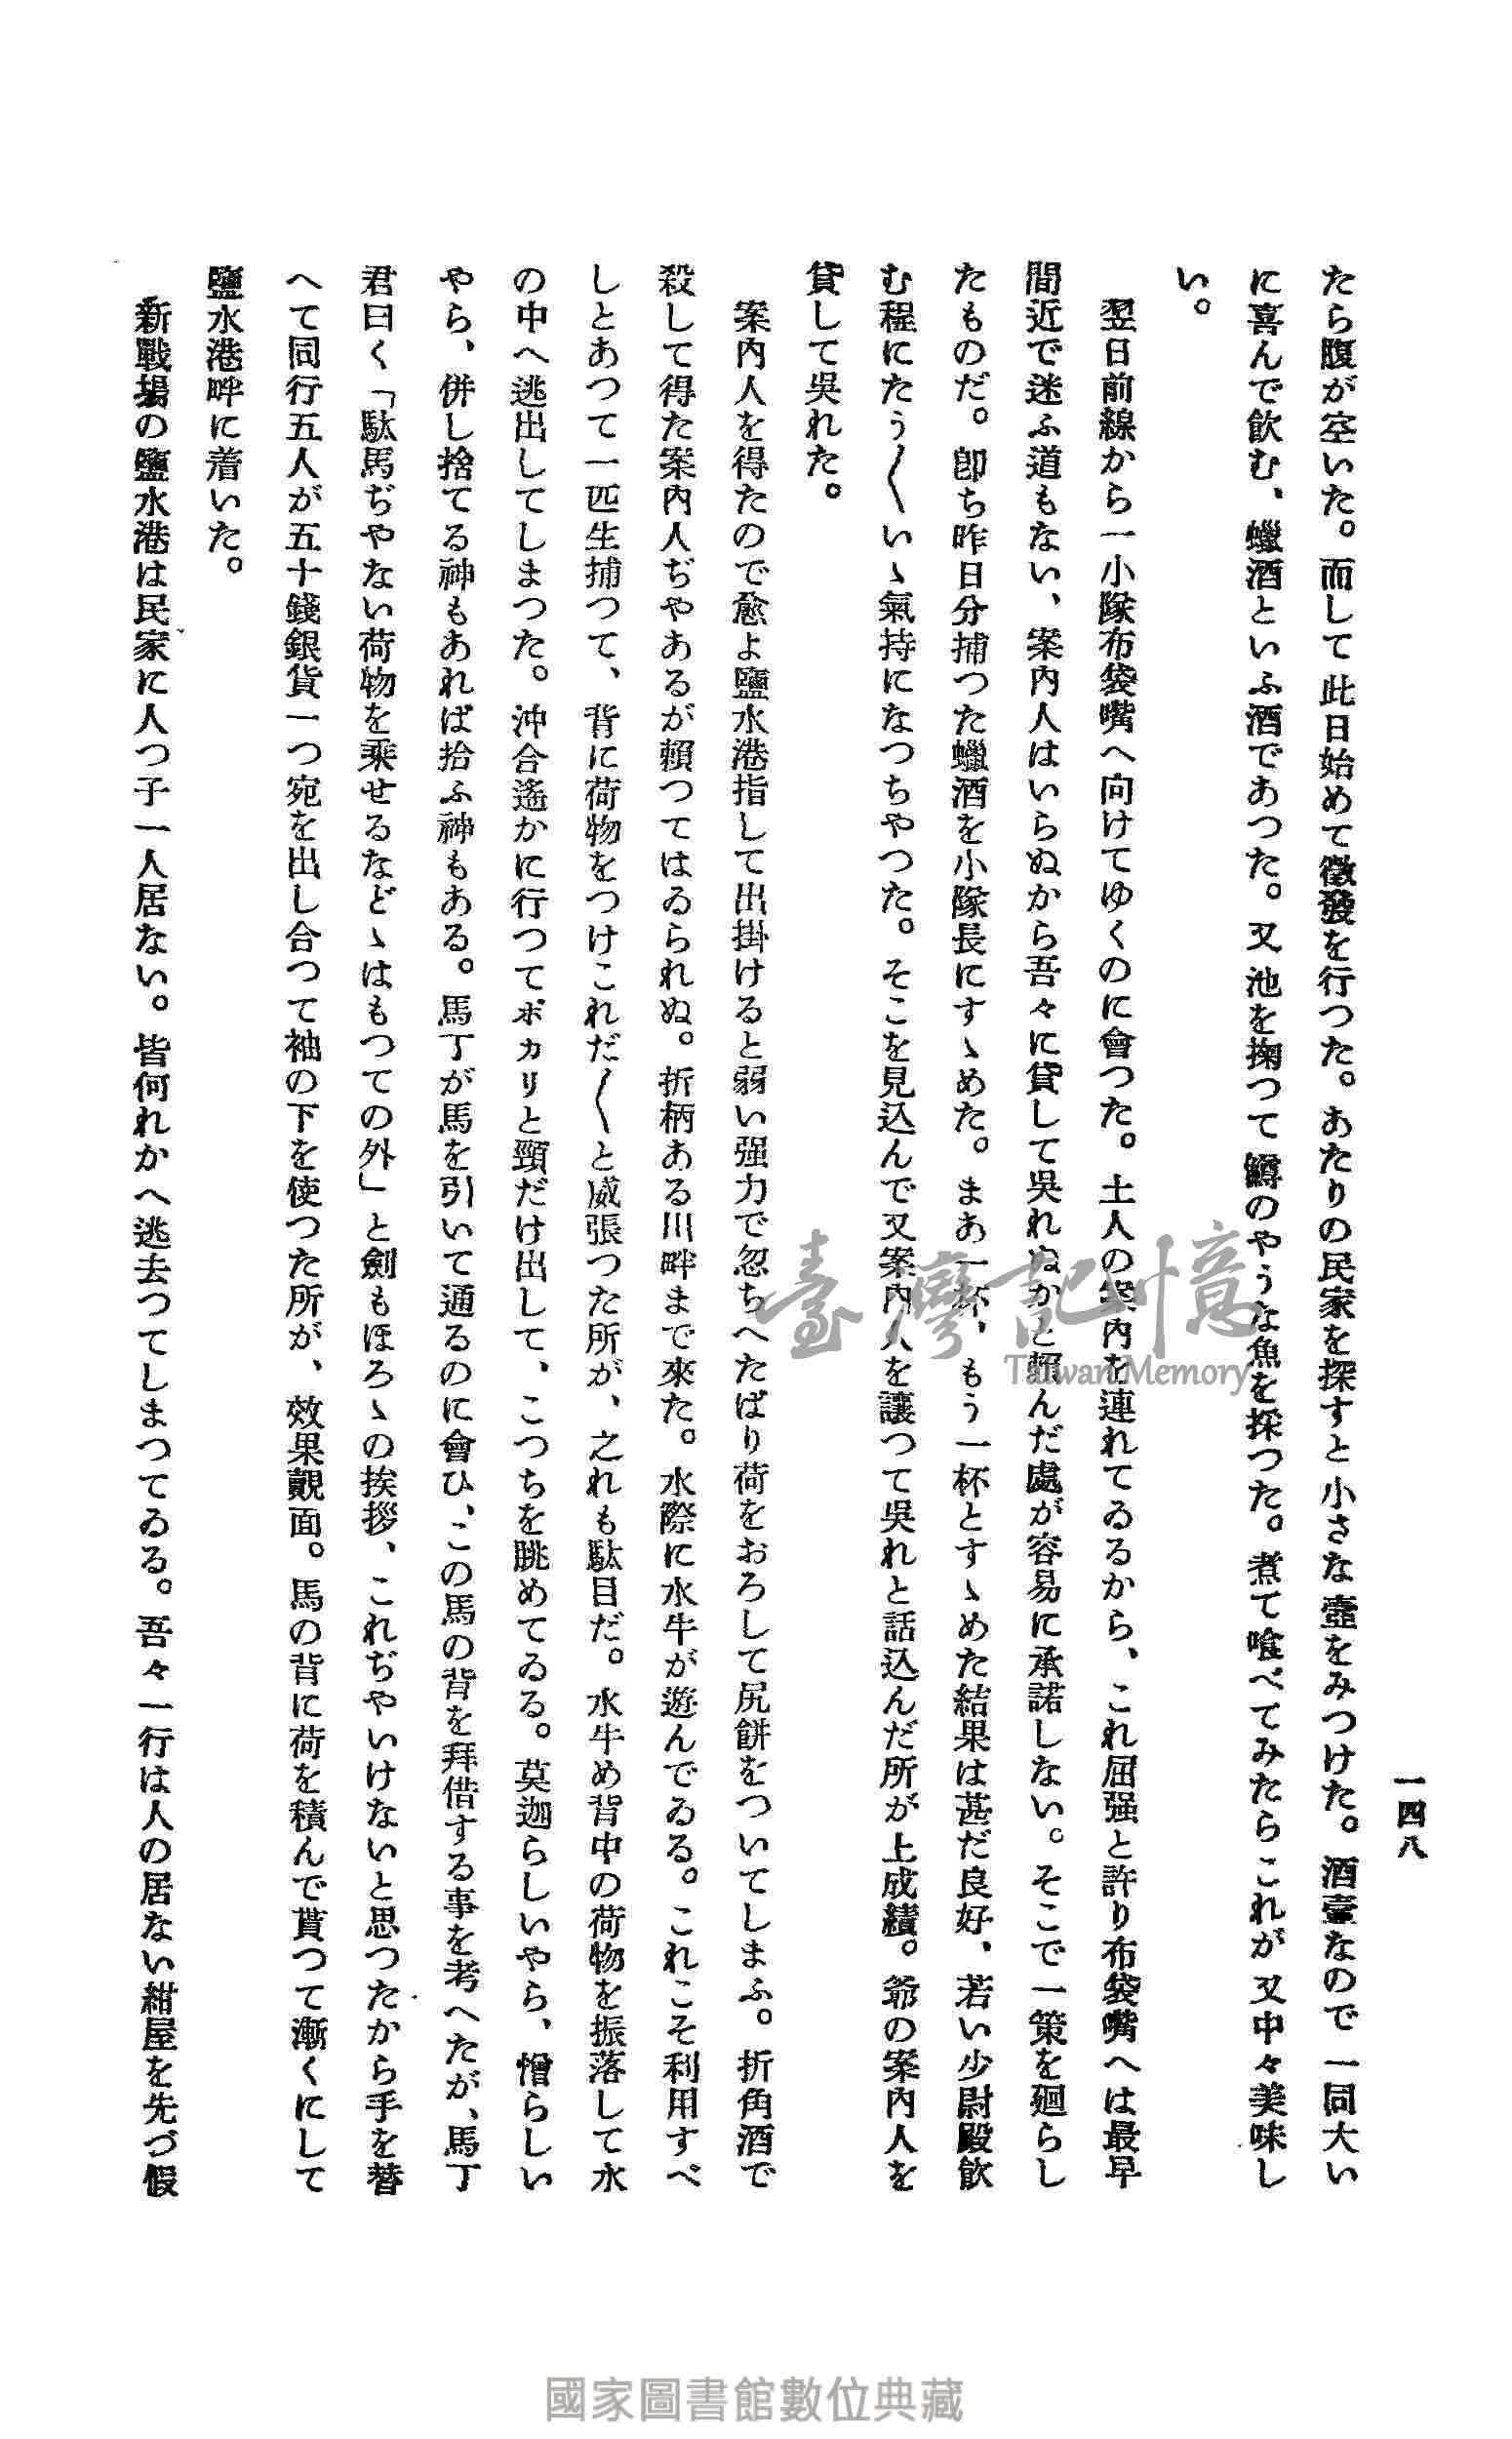 一四八
たら腹が空いた。而して此日始めて徴發を行つた。あたりの民家を探すと小さな壺をみつけた。酒壺なので一同大い
に喜んで飲む、蠟酒といふ酒であつた。又池を掬つて鱒のやうな魚を採つた。煮て喰べてみたらこれが又中々美味し
い。
翌日前線から一小隊布袋嘴へ向けてゆくのに會つた。土人の案内を連れてゐるから、これ屈强と許り布袋嘴へは最早
間近で迷ふ道もない、案内人はいらぬから吾々に貸して吳れぬかと賴んだ處が容易に承諾しない。そこで一策を廻らし
たものだ。卽ち昨日分捕つた蠟酒を小隊長にすゝめた。まあ一杯、もう一杯とすゝめた結果は甚だ良好、若い少尉殿飮
む程にたう〱いゝ氣持になつちやつた。そこを見込んで又案内人を讓つて吳れと話込んだ所が上成績。爺の案内人を
貸して吳れた。
案内人を得たので愈よ鹽水港指して出掛けると弱い强力で忽ちへたばり荷をおろして尻餠をついてしまふ。折角酒で
殺して得た案内人ぢやあるが賴つてはゐられぬ。折柄ある川畔まで來た。水際に水牛が遊んでゐる。これこそ利用すべ
しとあつて一匹生捕つて、背に荷物をつけこれだ〱と威張つた所が、之れも駄目だ。水牛め背中の荷物を振落して水
の中へ逃出してしまつた。沖合遙かに行つてポカリと頸だけ出して、こつちを眺めてゐる。莫迦らしいやら、憎らしい
やら、併し捨てる神もあれば拾ふ神もある。馬丁が馬を引いて通るのに會ひ、この馬の背を拜借する事を考へたが、馬丁
君曰く「駄馬ぢやない荷物を乘せるなどゝはもつての外」と劍もほろゝの挨拶、これぢやいけないと思つたから手を替
へて同行五人が五十錢銀貨一つ宛を出し合つて袖の下を使つた所が、效果覿面。馬の背に荷を積んで貰つて漸くにして
鹽水港畔に着いた。
新戰場の鹽水港は民家に人つ子一人居ない。皆何れかへ逃去つてしまつてゐる。吾々一行は人の居ない紺屋を先づ假
臺灣記憶
Taiwan Memory
國家圖書館數位典藏